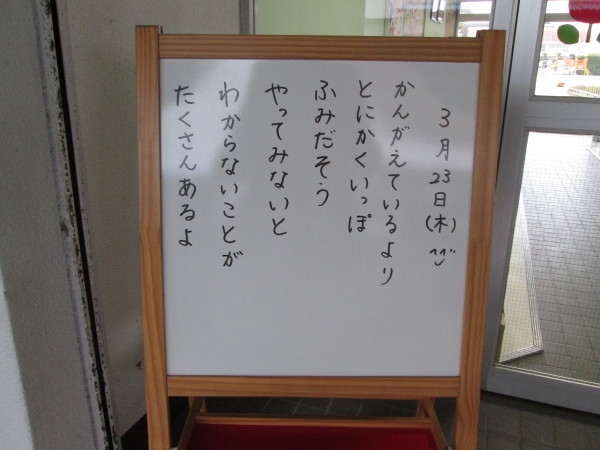 3月23日(木)
かんがえているより
とにかくいっぽ
ふみだそう
やってみないと
わからないことが
たくさんあるよ